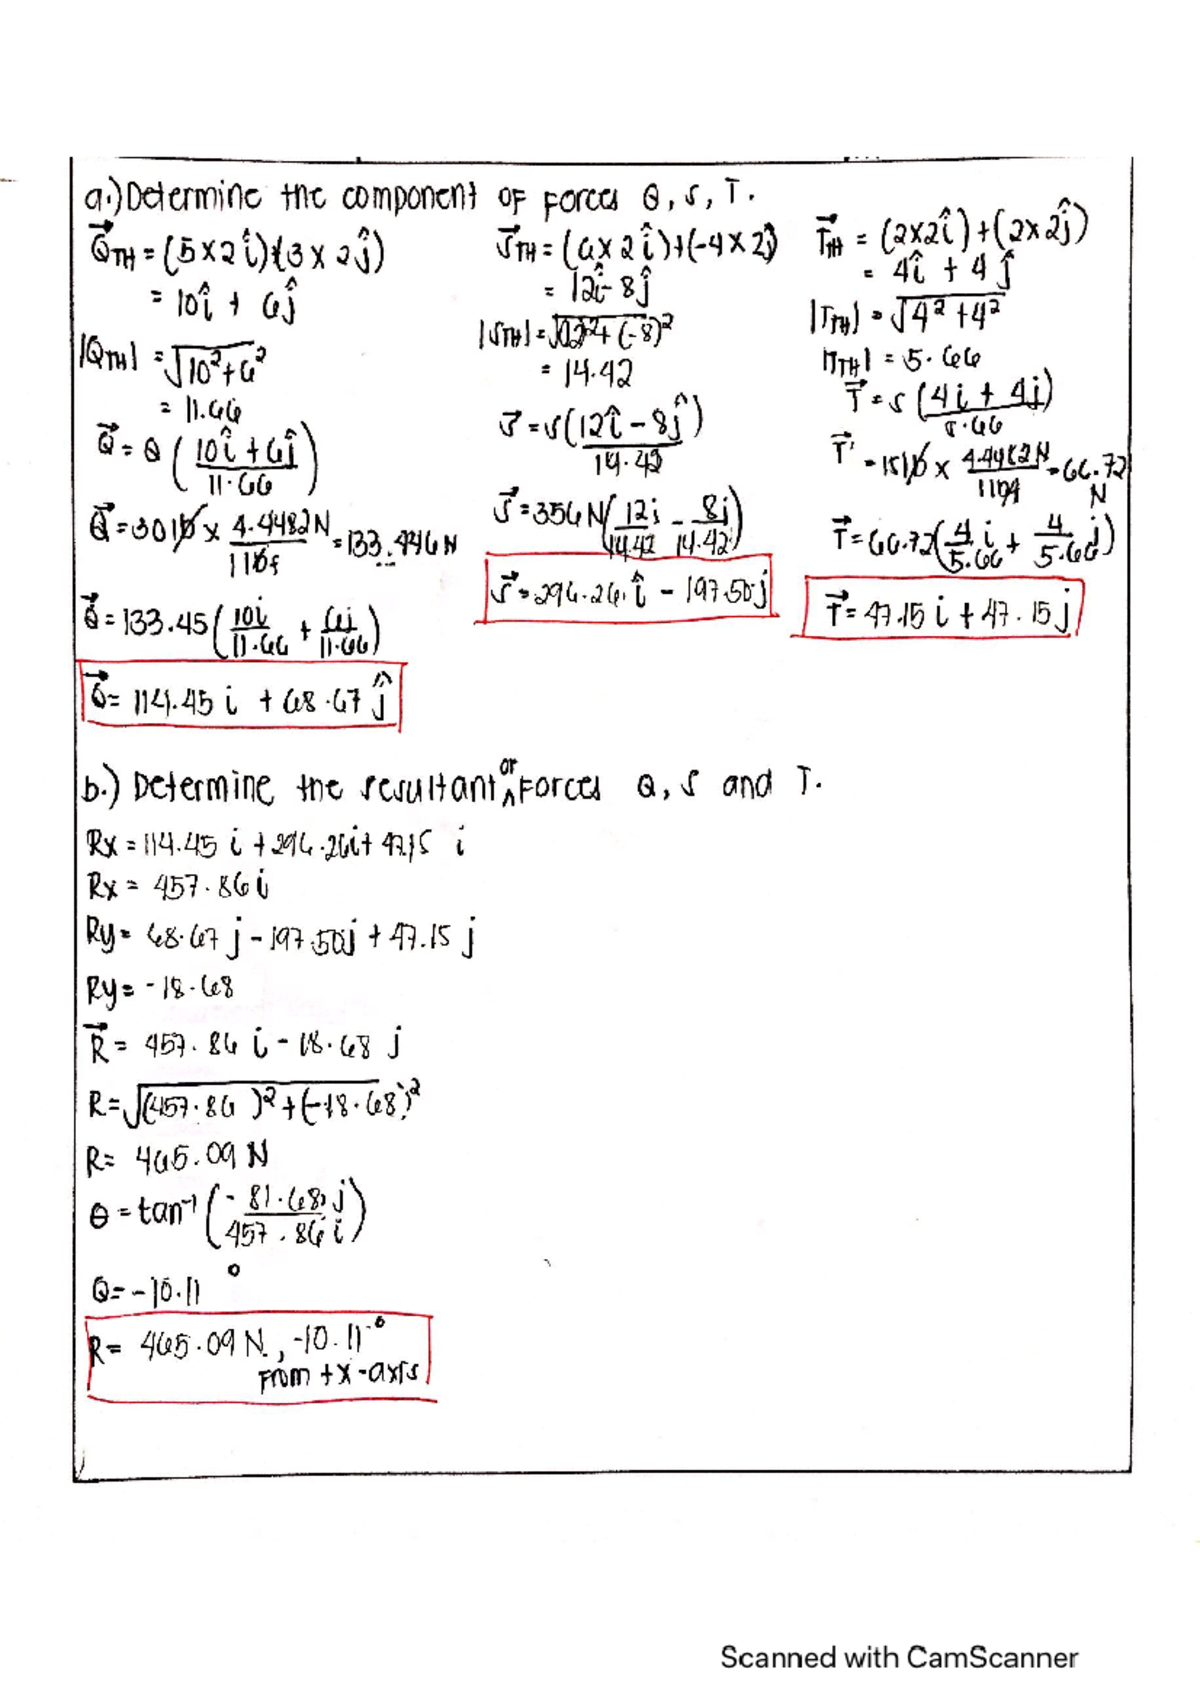 a.) Determine the component of Forces Q, S, T.
Q⃗TH = (5 x 2 î) + (3 x 2 ĵ)
= 10î + 6ĵ
|QTH| = √10² + 6²
= 11.66
Q⃗ = Q (10î + 6ĵ / 11.66)
Q⃗ = 30 lb x 4.4482N / 1 lbf = 133.446 N
Q⃗ = 133.45 (10i / 11.66 + 6j / 11.66)
Q⃗ = 114.45 i + 68.67 ĵ
S⃗TH = (6 x 2 î) + (-4 x 2 ĵ)
= 12î - 8ĵ
|STH| = √12² + (-8)²
= 14.42
S⃗ = S (12î - 8ĵ / 14.42)
S⃗ = 356 N (12i / 14.42 - 8j / 14.42)
S⃗ = 296.26 î - 197.50 j
T⃗TH = (2x2î) + (2x2ĵ)
= 4î + 4ĵ
|TTH| = √4² + 4²
|TTH| = 5.66
T⃗ = S (4i + 4j / 5.66)
T⃗ = 15 lb x 4.4482N / 1 lbf = 66.72 N
T⃗ = 66.72 (4 / 5.66 i + 4 / 5.66 j)
T⃗ = 47.15 i + 47.15 j
b.) Determine the resultant of Forces Q, S and T.
Rx = 114.45 i + 296.26i + 47.15 i
Rx = 457.86 i
Ry = 68.67 j - 197.50j + 47.15 j
Ry = -18.68
R⃗ = 457.86 i - 18.68 j
R = √(457.86)² + (-18.68)²
R = 465.09 N
θ = tan⁻¹ (-81.68 j / 457.86 i)
Q = -10.11°
R = 465.09 N, -10.11°
From +x-axis
Scanned with CamScanner